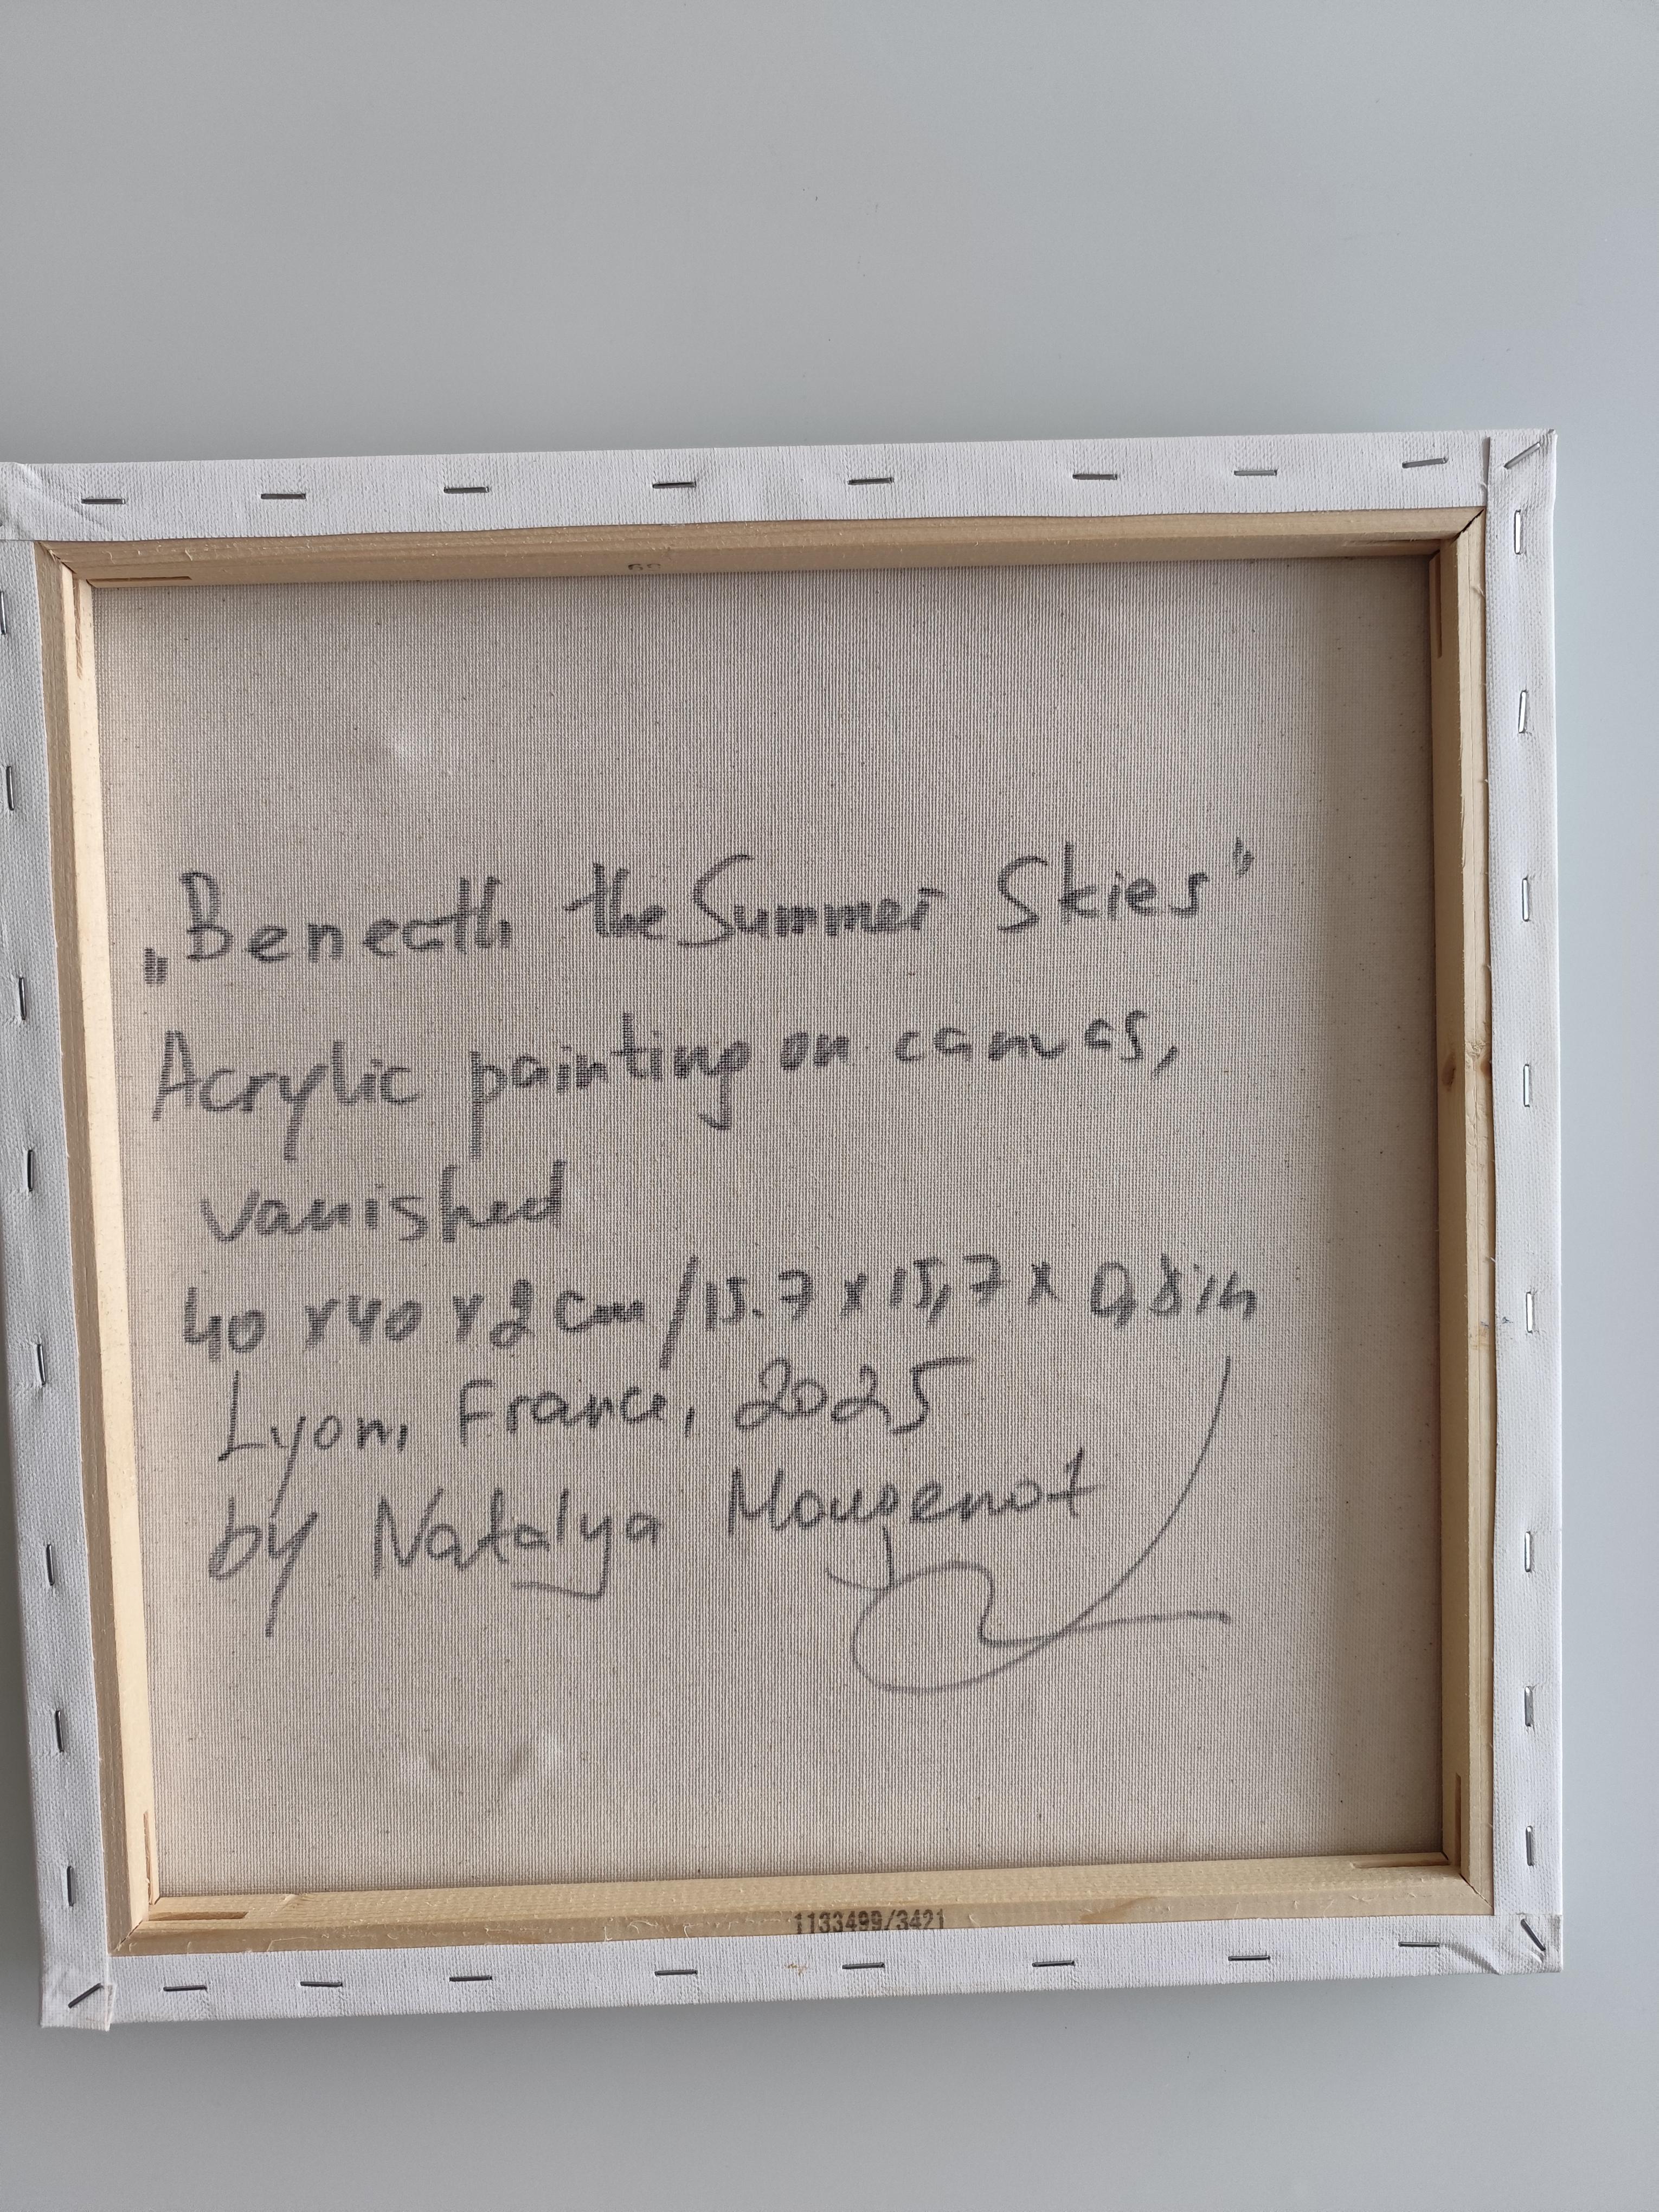 „Beneath the Summer Skies"
Acrylic painting on canvas,
vanished
40 x 40 x 2 cm / 15.7 x 15,7 x 0,8 in
Lyon, France, 2025
by Natalya Mougenot
1133499/3421